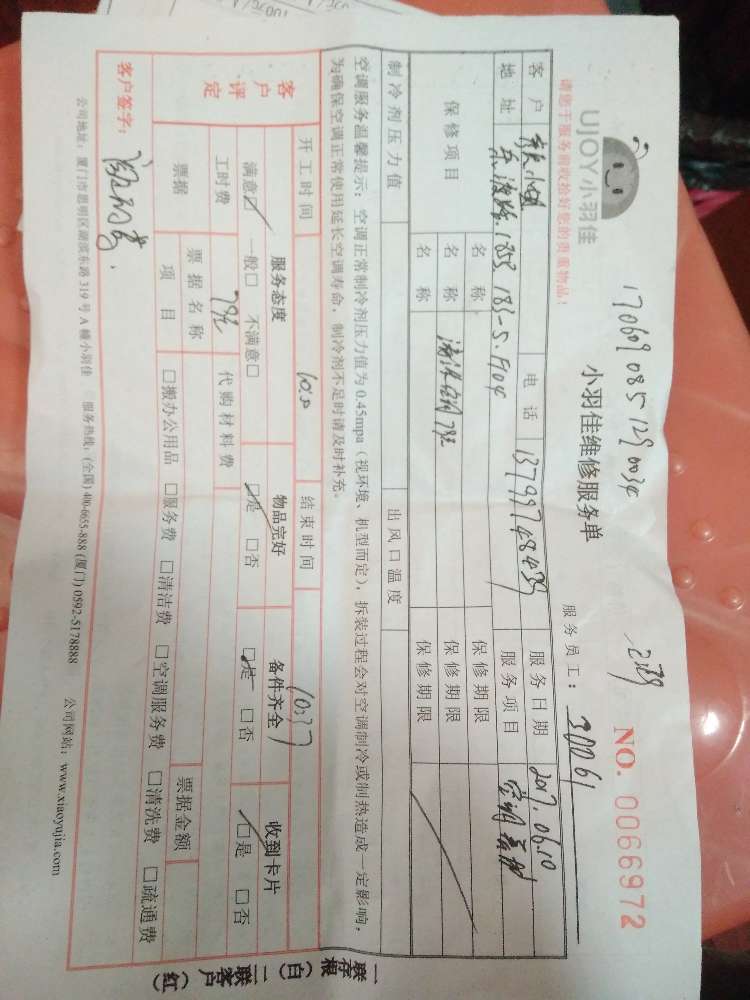 170609085129 0034
UJOY小羽佳
小羽佳维修服务单
NO. 0066972
请您于服务前收拾好您的贵重物品！
服务员工：30061
客户 小姐 电话 13799748439 服务日期 2017.06.10
地址 1853 183-5.F904 服务项目 空调
保修项目 名称 保修期限
名称 保修期限
名称 清洗空调79元 保修期限
制冷剂压力值 出风口温度
空调服务温馨提示：空调正常制冷剂压力值为0.45mpa（视环境、机型而定），拆装过程会对空调制冷或制热造成一定影响，
为确保空调正常使用延长空调寿命，制冷剂不足时请及时补充。
开工时间 10:00 结束时间 10:37
客户评定 服务态度 物品完好 备件齐全 收到卡片
满意☑ 一般□ 不满意□ ☑是 □否 ☑是 □否 ☑是 □否
工时费 79元 代购材料费
票据 票据名称 票据金额
项目 □搬办公用品 □服务费 □清洁费 □空调服务费 □清洗费 □疏通费
客户签字：
公司地址：厦门市思明区湖滨东路319号A幢小羽佳 服务热线：(全国) 400-6655-888 (厦门) 0592-5178888 公司网站：www.xiaoyujia.com
一联存根（白） 二联客户（红）